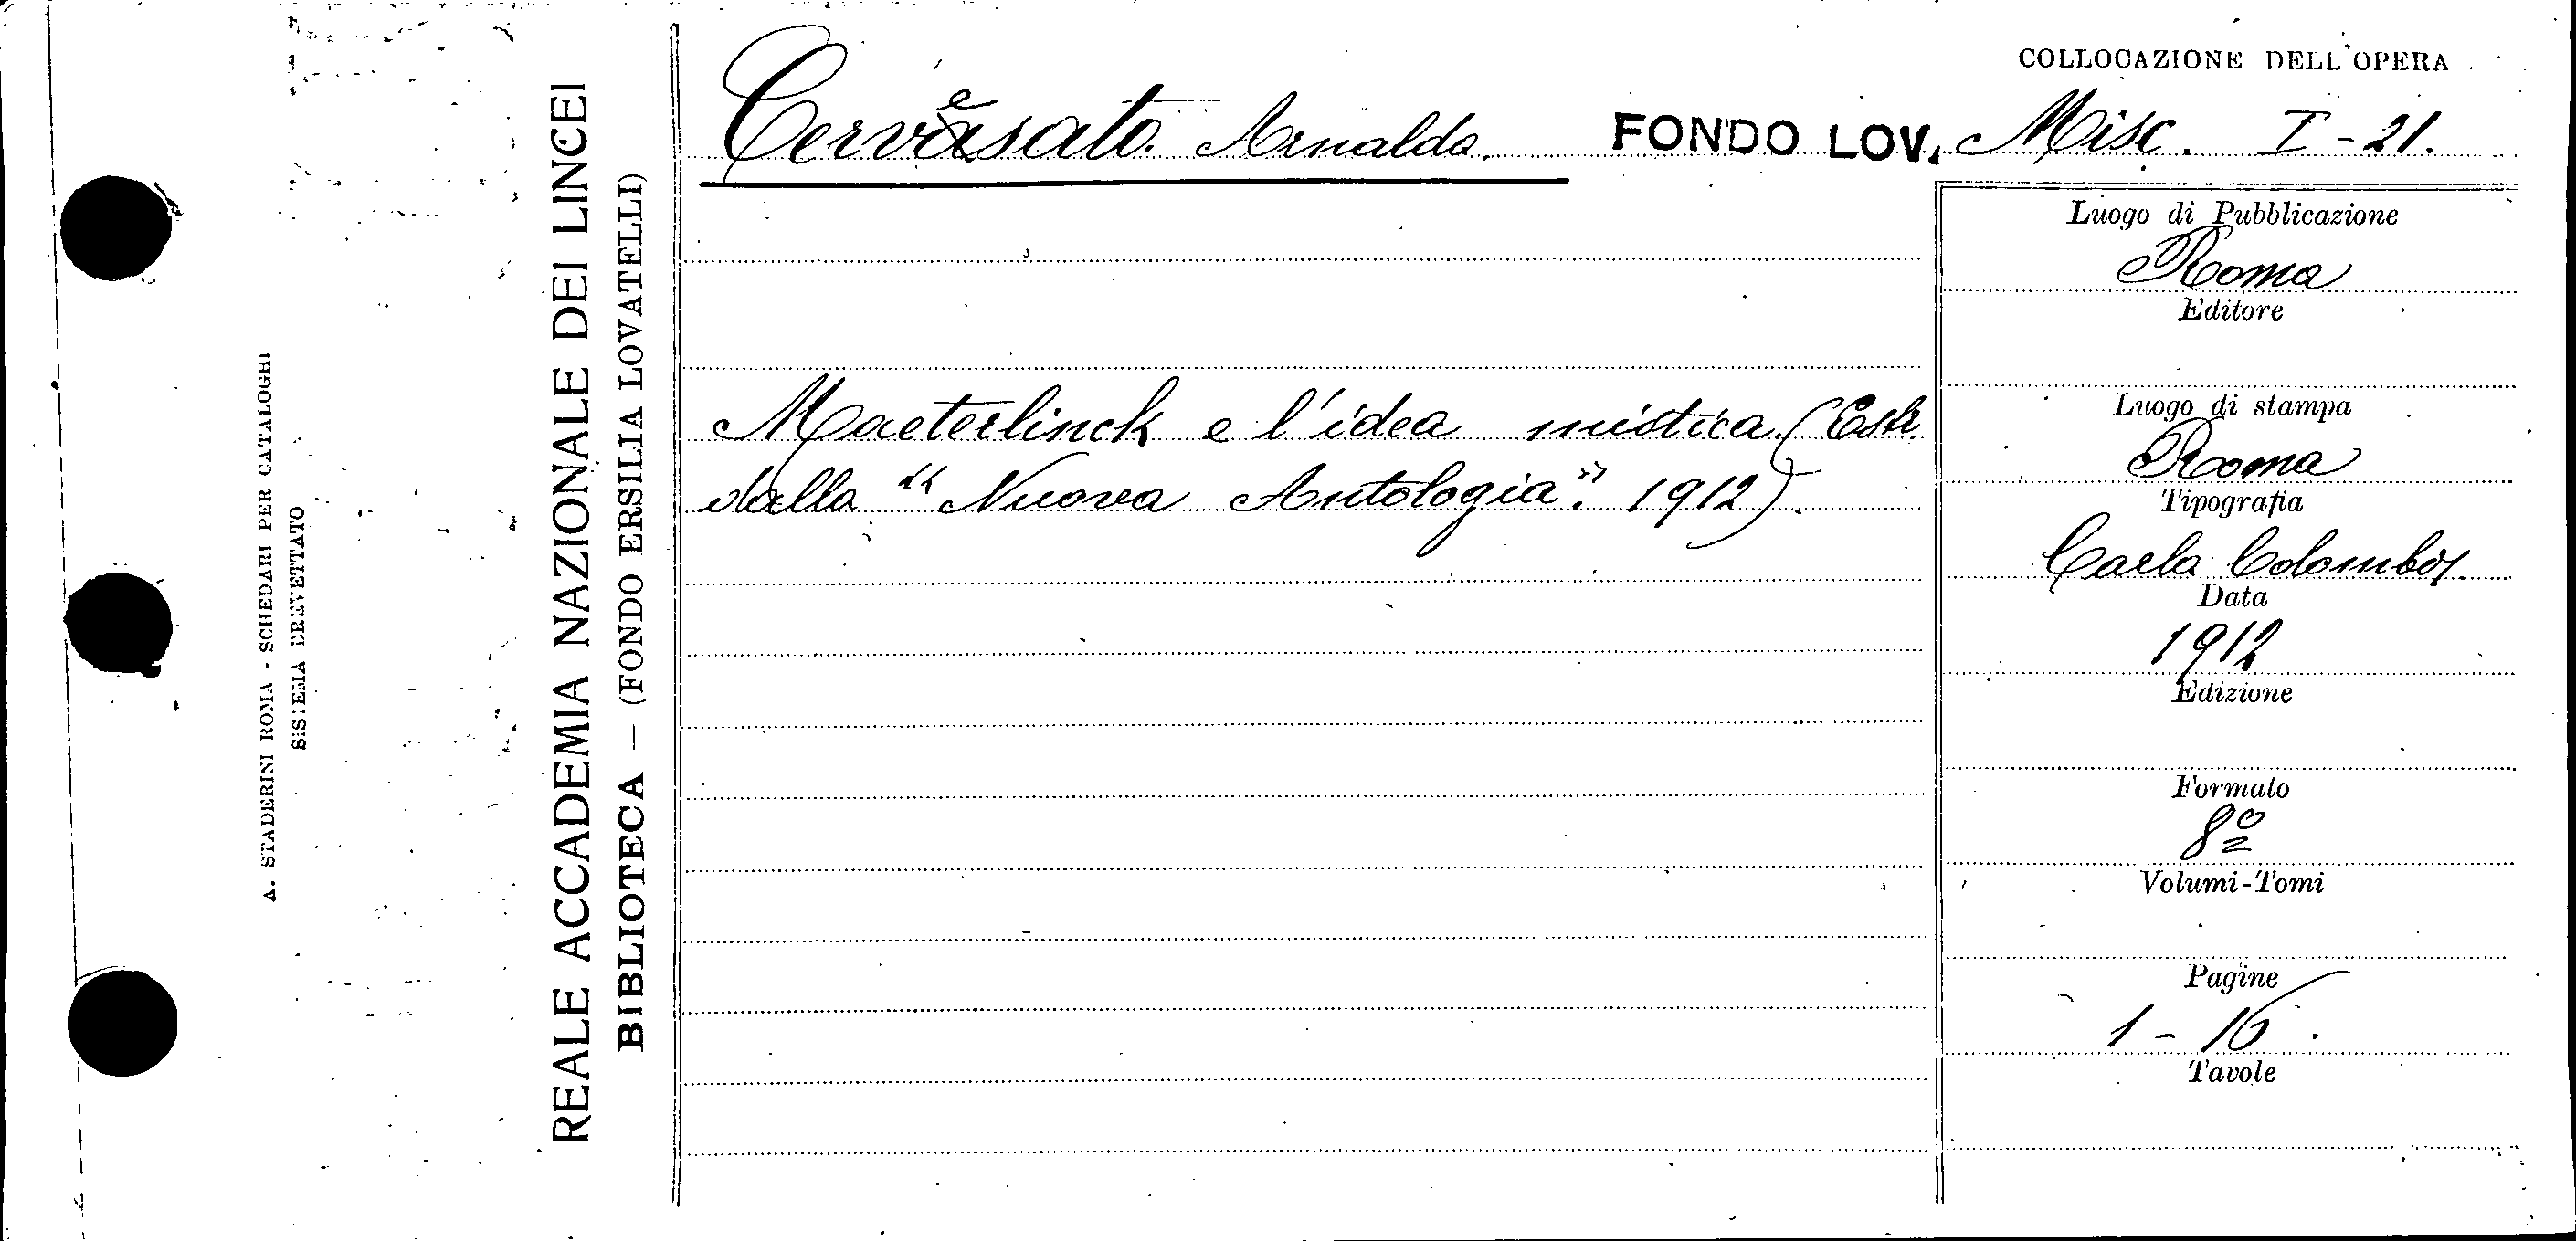 COLLOCAZIONE DELL'OPERA
Cervesato Arnaldo. FONDO LOV. Misc. I-21.
Maeterlinck e l'idea mistica. (Estr.
dalla "Nuova Antologia". 1912).
Luogo di Pubblicazione
Roma
Editore
Luogo di stampa
Roma
Tipografia
Carlo Colombo.
Data
1912
Edizione
Formato
8º
Volumi-Tomi
Pagine
1-16.
Tavole
REALE ACCADEMIA NAZIONALE DEI LINCEI
BIBLIOTECA — (FONDO ERSILIA LOVATELLI)
A. STADERINI ROMA - SCHEDARI PER CATALOGHI
SISTEMA BREVETTATO